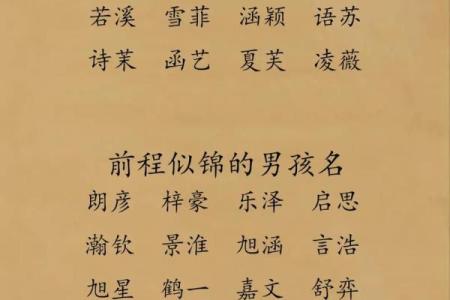 若溪 雪菲 涵颖 语苏
诗茉 函艺 夏芙 凌薇
前程似锦的男孩名
朗彦 梓豪 乐泽 启思
瀚钦 景淮 旭涵 言浩
旭星 鹤一 嘉文 舒弈